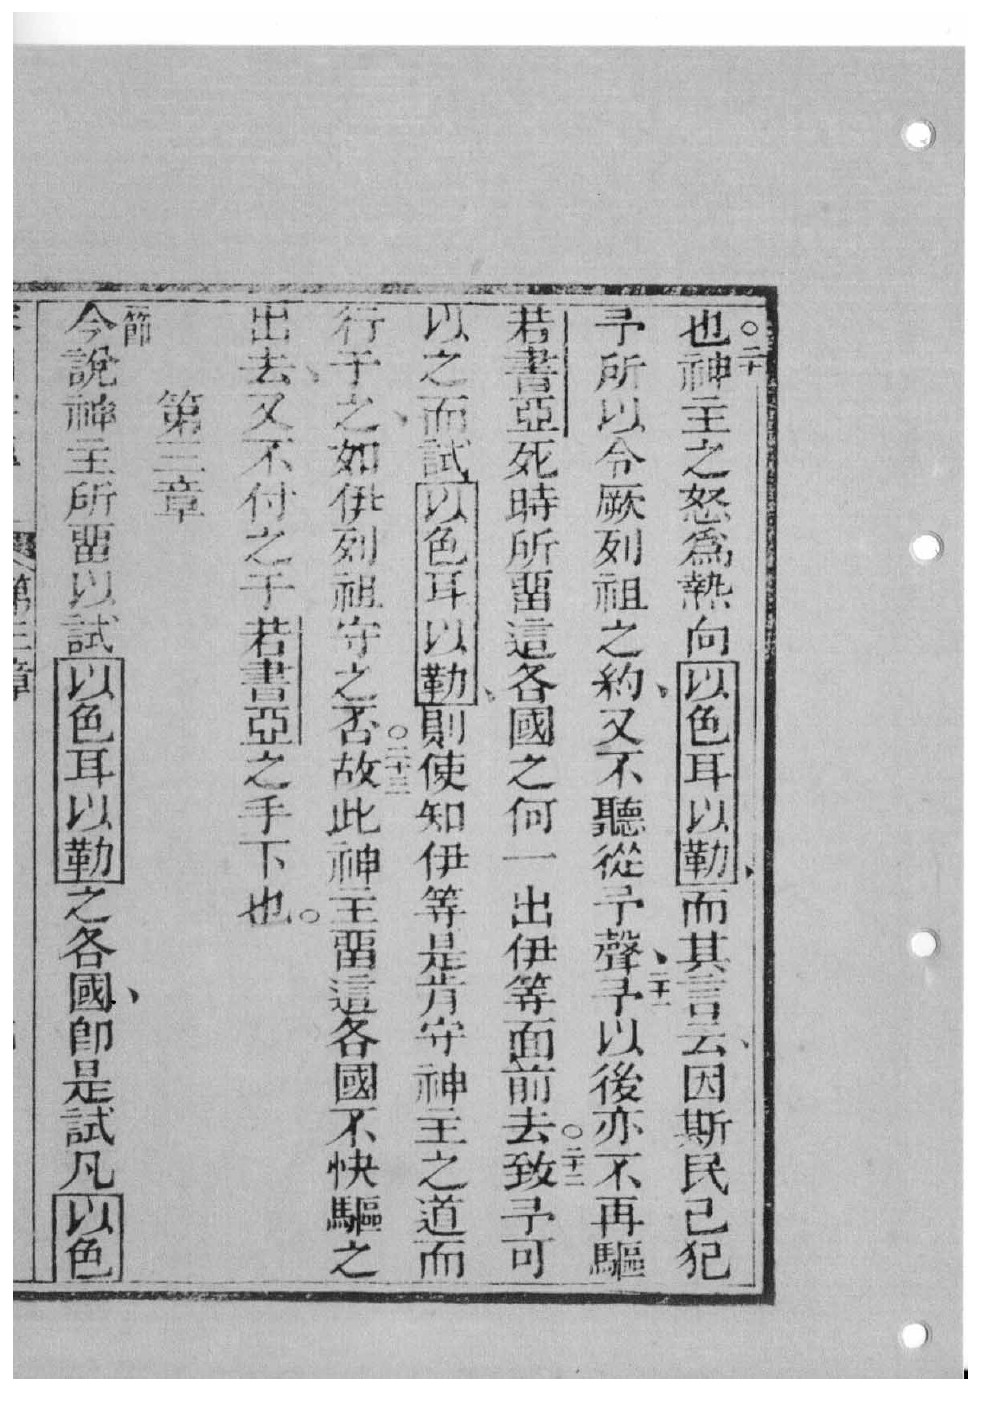 也○二十神主之怒爲熱向以色耳以勒、而其言云、因斯民己犯
予所以令厥列祖之約、又不聽從予聲、二十一予以後亦不再驅
若書亞死時所畱這各國之何一出伊等面前去○二十二致予可
以之而試以色耳以勒、則使知伊等是肯守神主之道而
行于之、如伊列祖守之否○二十三故此神主畱這各國不快驅之
出去、又不付之于若書亞之手下也。
第三章
節今說神主所畱以試以色耳以勒之各國、卽是試凡以色
第三章